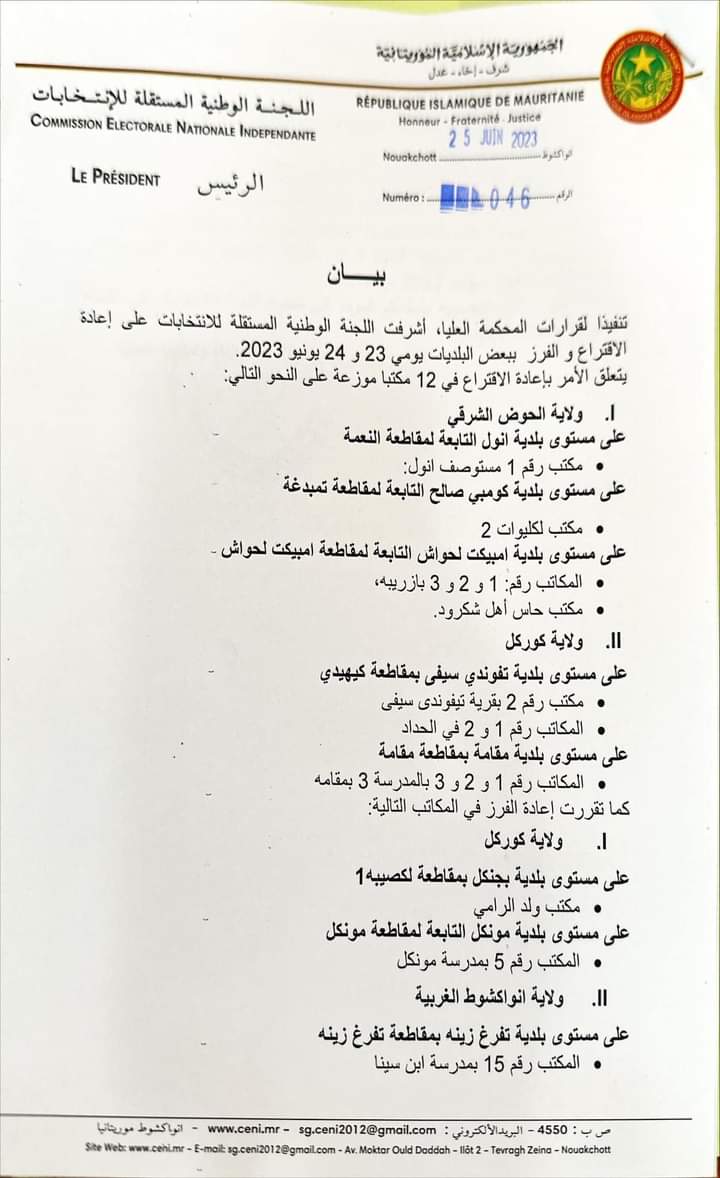 الجمهورية الإسلامية الموريتانية
شرف - إخاء - عدل
اللجنة الوطنية المستقلة للإنتخابات
RÉPUBLIQUE ISLAMIQUE DE MAURITANIE
COMMISSION ELECTORALE NATIONALE INDEPENDANTE
Honneur - Fraternité - Justice
25 JUIN 2023
Nouakchott انواكشوط
LE PRÉSIDENT الرئيس
Numéro : 046 الرقم
بيـــان
تنفيذا لقرارات المحكمة العليا، أشرفت اللجنة الوطنية المستقلة للانتخابات على إعادة
الاقتراع و الفرز ببعض البلديات يومي 23 و 24 يونيو 2023.
يتعلق الأمر بإعادة الاقتراع في 12 مكتبا موزعة على النحو التالي:
I. ولاية الحوض الشرقي
على مستوى بلدية انول التابعة لمقاطعة النعمة
• مكتب رقم 1 مستوصف انول:
على مستوى بلدية كومبي صالح التابعة لمقاطعة تمبدغة
• مكتب لكليوات 2
على مستوى بلدية امبيكت لحواش التابعة لمقاطعة امبيكت لحواش -
• المكاتب رقم: 1 و 2 و 3 بازريبه،
• مكتب حاس أهل شكرود.
II. ولاية كوركل
على مستوى بلدية تفوندي سيفى بمقاطعة كيهيدي
• مكتب رقم 2 بقرية تيفوندى سيفى
• المكاتب رقم 1 و 2 في الحداد
على مستوى بلدية مقامة بمقاطعة مقامة
• المكاتب رقم 1 و 2 و 3 بالمدرسة 3 بمقامه
كما تقررت إعادة الفرز في المكاتب التالية:
I. ولاية كوركل
على مستوى بلدية بجنكل بمقاطعة لكصيبه1
• مكتب ولد الرامي
على مستوى بلدية مونكل التابعة لمقاطعة مونكل
• المكتب رقم 5 بمدرسة مونكل
II. ولاية انواكشوط الغربية
على مستوى بلدية تفرغ زينه بمقاطعة تفرغ زينه
• المكتب رقم 15 بمدرسة ابن سينا
ص ب : 4550 – البريد الألكتروني : sg.ceni2012@gmail.com – www.ceni.mr - انواكشوط موريتانيا
Site Web: www.ceni.mr - E-mail: sg.ceni2012@gmail.com - Av. Moktar Ould Daddah - Ilôt 2 - Tevragh Zeina - Nouakchott